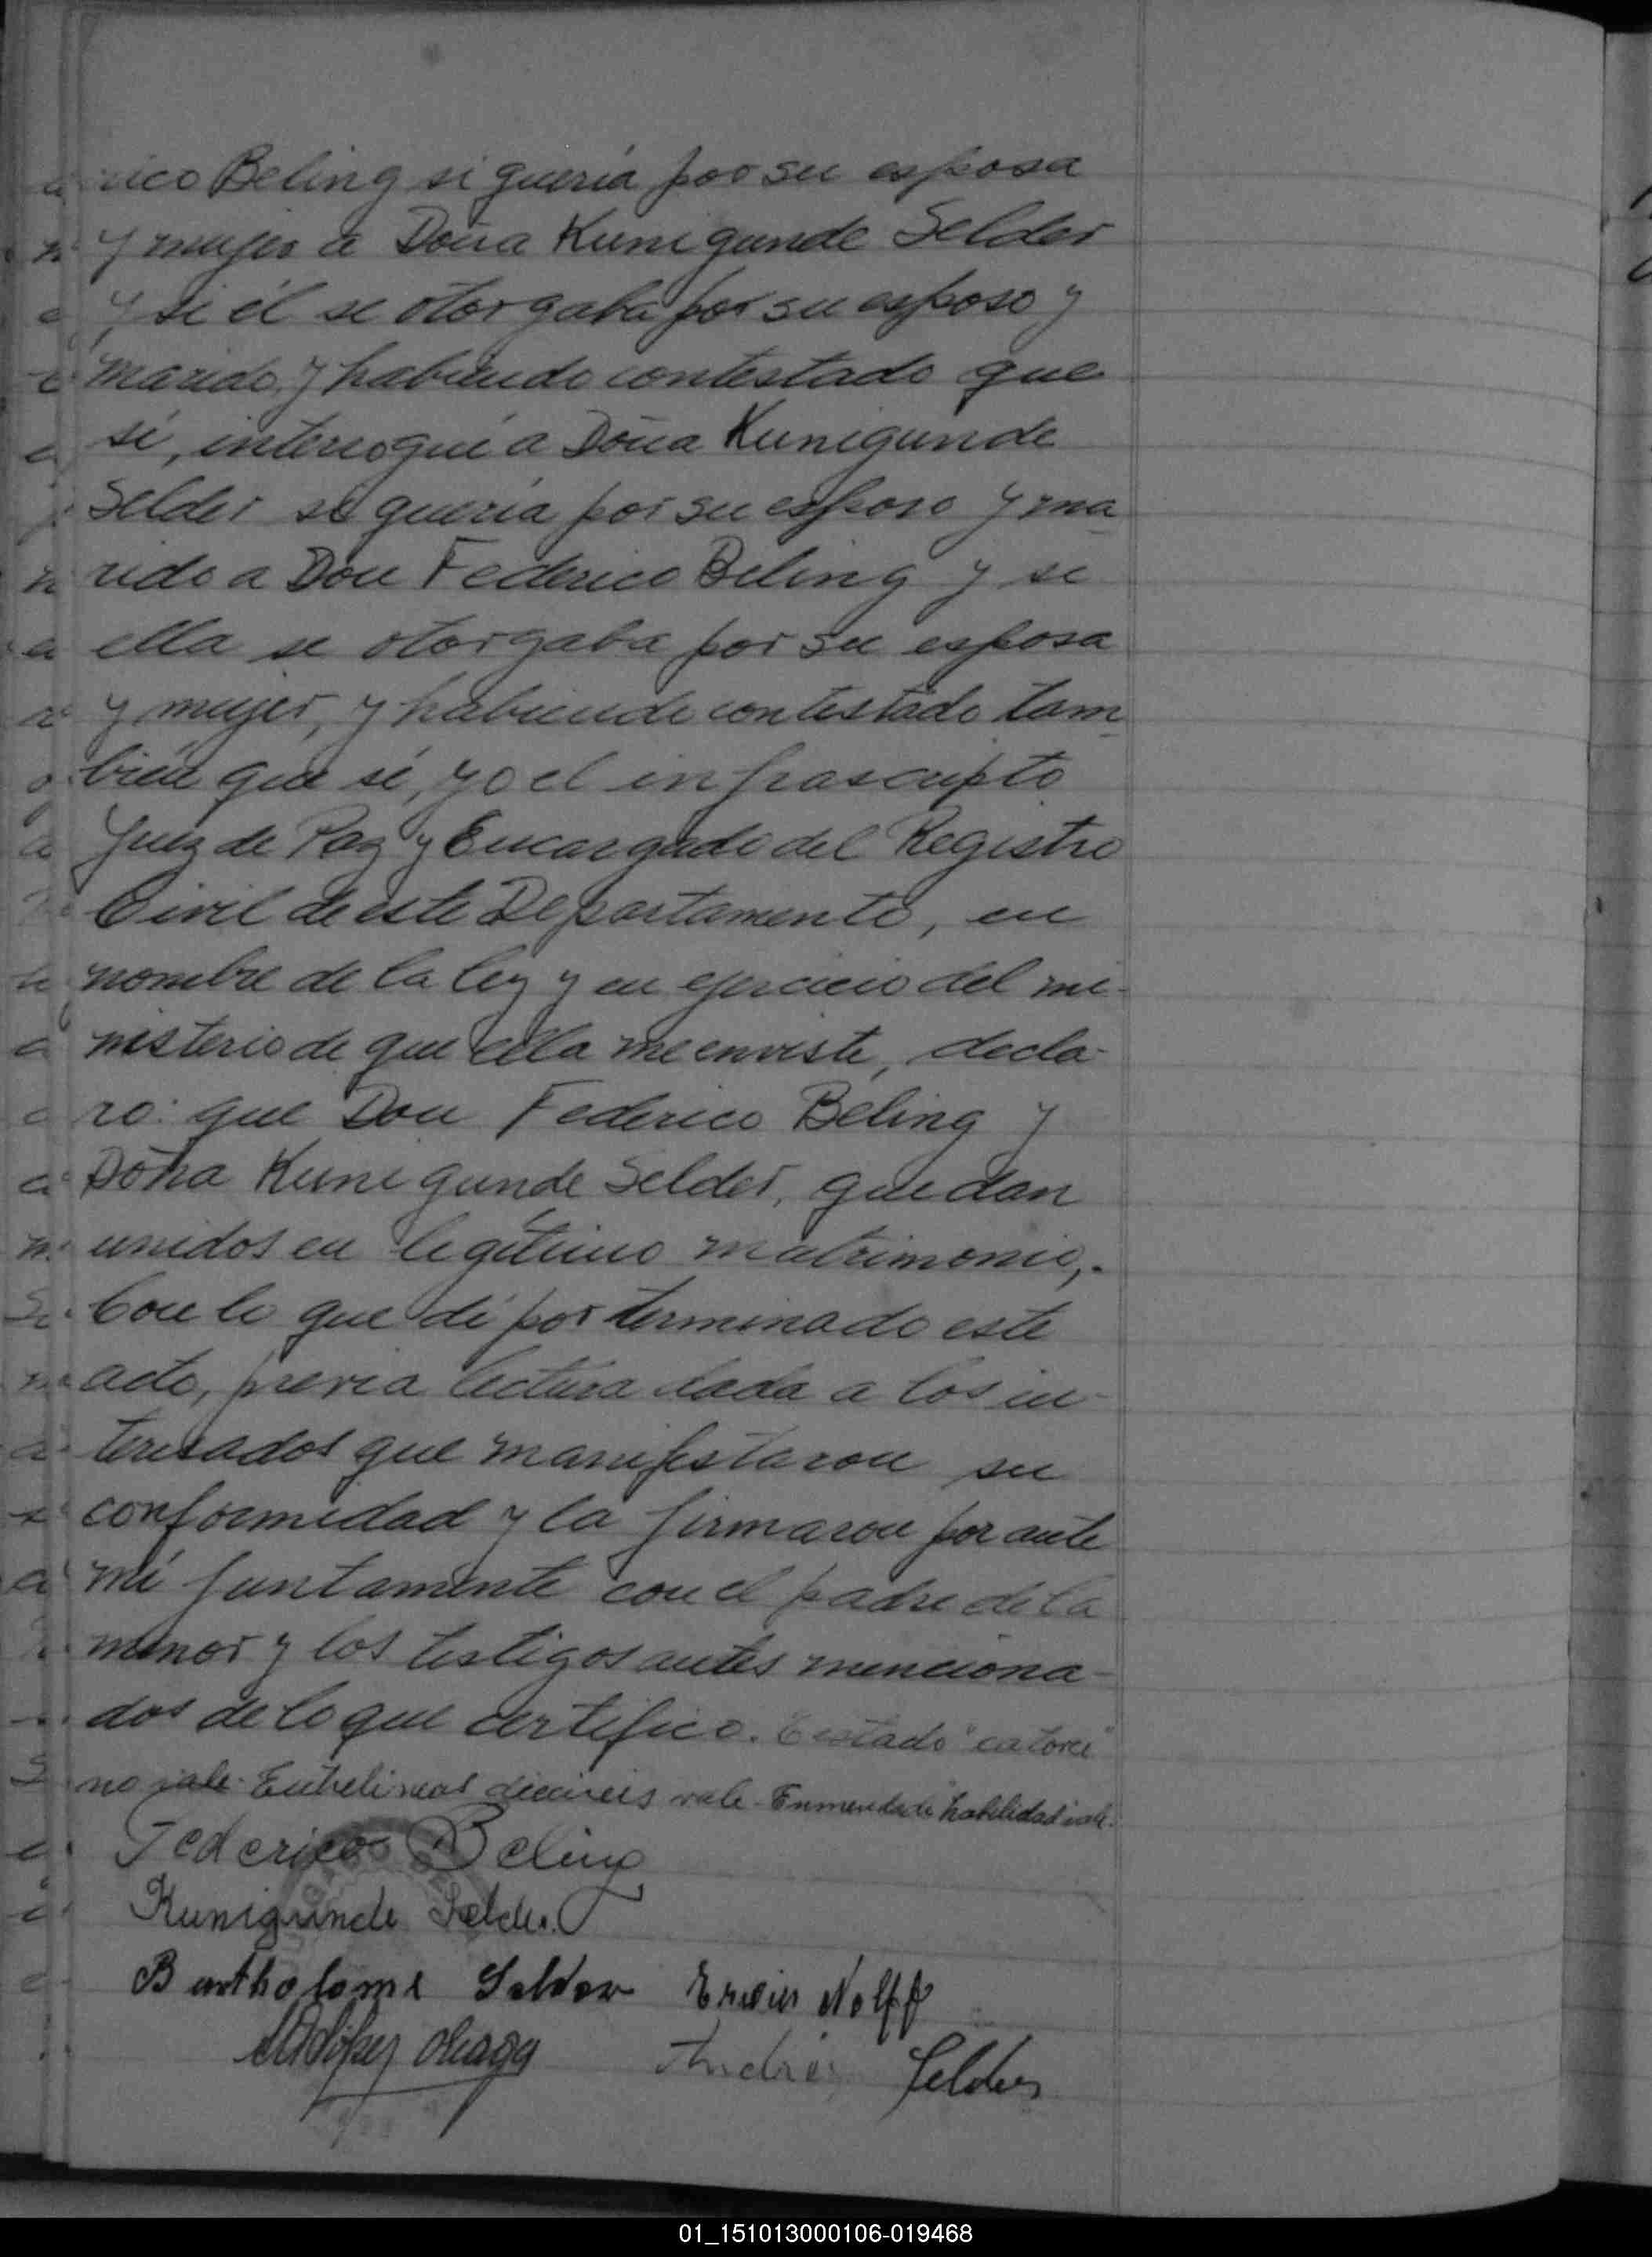 rico Beling si quería por su esposa
y mujer a Doña Kunigunde Selder
y si él se otorgaba por su esposo y
marido, y habiendo contestado que
sí, interrogué a Doña Kunigunde
Selder si quería por su esposo y ma
rido a Don Federico Beling y si
ella se otorgaba por su esposa
y mujer, y habiendo contestado tam
bién que sí, yo el infrascripto
Juez de Paz y Encargado del Registro
Civil de este Departamento, en
nombre de la ley y en ejercicio del mi-
nisterio de que ella me enviste, decla-
ro: que Don Federico Beling y
Doña Kunigunde Selder, quedan
unidos en legítimo matrimonio,.
Con lo que dí por terminado este
acto, previa lectura dada a los in-
teresados que manifestaron su
conformidad y la firmaron por ante
mí juntamente con el padre de la
menor y los testigos antes menciona-
dos de lo que certifico. Testado "catorce"
no vale. Entrelíneas dieciseis vale - Enmendado habilidad vale.
Federico Beling
Kunigunde Selder
Bartholome Selder Erwin Nolff
Andrés Selder
01_151013000106-019468